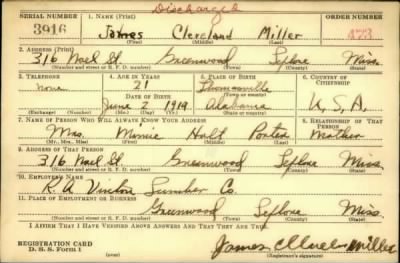 Discharged
SERIAL NUMBER 1. NAME (Print) ORDER NUMBER
3916 James Cleveland Miller
(First) (Middle) (Last)
2. ADDRESS (Print)
316 Noel St. Greenwood Leflore Miss.
(Number and street or R. F. D. number) (Town) (County) (State)
3. TELEPHONE 4. AGE IN YEARS 5. PLACE OF BIRTH 6. COUNTRY OF CITIZENSHIP
none 21 Thomasville
(Town or county)
DATE OF BIRTH
June 2 1919 Alabama U.S.A.
(Exchange) (Number) (Mo.) (Day) (Yr.) (State or country)
7. NAME OF PERSON WHO WILL ALWAYS KNOW YOUR ADDRESS 8. RELATIONSHIP OF THAT PERSON
Mrs. Minnie Holt Porter Mother
(Mr., Mrs., Miss) (First) (Middle) (Last)
9. ADDRESS OF THAT PERSON
316 Noel St. Greenwood Leflore Miss.
(Number and street or R. F. D. number) (Town) (County) (State)
10. EMPLOYER'S NAME
R. A. Vinton Lumber Co.
11. PLACE OF EMPLOYMENT OR BUSINESS
Greenwood Leflore Miss.
(Number and street or R. F. D. number) (Town) (County) (State)
I AFFIRM THAT I HAVE VERIFIED ABOVE ANSWERS AND THAT THEY ARE TRUE.
REGISTRATION CARD
D. S. S. Form 1
James Cleveland Miller
(Registrant's signature)